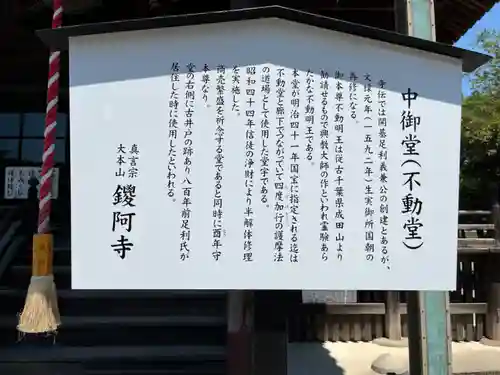 中御堂(不動堂)
寺伝では開基足利義兼公の創建とあるが、
文禄元年(一五九二年)生実御所国朝の
再修になる。
御本尊不動明王は従古千葉県成田山より
勧請せるもので興教大師の作といわれ霊験あら
たかな不動明王である。
本堂が明治四十一年国宝に指定される迄は
不動堂と廊下でつながっていて四度加行の護摩法
の道場として使用した堂宇である。
昭和四十四年信徒の浄財により半解体修理
を実施した。
商売繁盛を祈念する堂であると同時に酉年守
本尊なり。
堂の右側に古井戸の跡あり八百年前足利氏が
居住した時に使用したといわれる。
真言宗
大本山 鑁阿寺